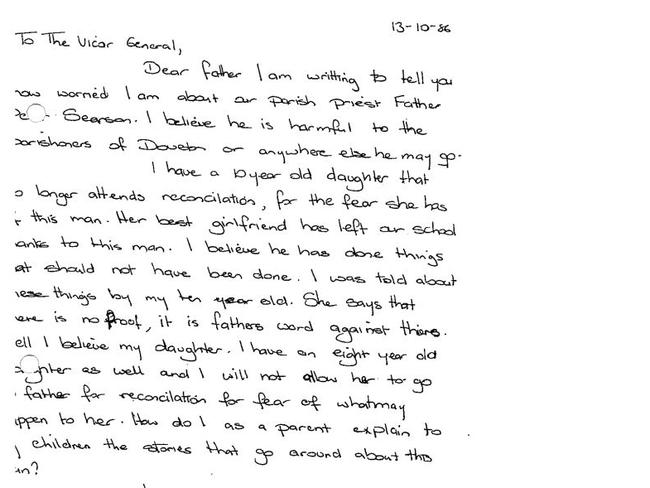 13-10-86
To The Vicar General,
Dear father I am writting to tell you
how worried I am about our parish priest Father
Searson. I believe he is harmful to the
parishoners of Doveton or anywhere else he may go.
I have a 10 year old daughter that
o longer attends reconcilation, for the fear she has
this man. Her best girlfriend has left our school
anks to this man. I believe he has done things
at should not have been done. I was told about
hese things by my ten year old. She says that
ere is no proof, it is fathers word against theirs.
ell I believe my daughter. I have an eight year old
ghter as well and I will not allow her to go
father for reconcilation for fear of whatmay
appen to her. How do I as a parent explain to
y children the stories that go around about this
an?